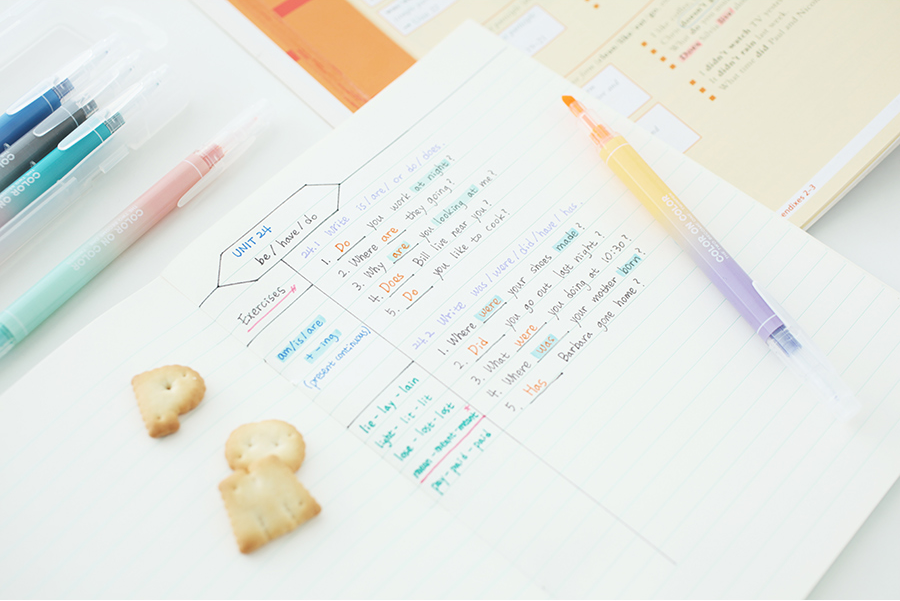 UNIT 24
be / have / do
Exercises
am/is/are
+ -ing
(present continuous)
lie - lay - lain
light - lit - lit
lose - lost - lost
mean - meant - meant
pay - paid - paid
24.1 Write is/are/ or do/does
1. Do you work at night?
2. Where are they going?
3. Why are you looking at me?
4. Does Bill live near you?
5. Do you like to cook?
24.2 Write was/were/did/have/has.
1. Where were your shoes made?
2. Did you go out last night?
3. What were you doing at 10:30?
4. Where was your mother born?
5. Has Barbara gone home?
COLOR ON COLOR
COLOR ON COLOR
COLOR ON
COLOR
I didn't watch TV
It didn't rain last week
What time did Paul and
endixes 2-3